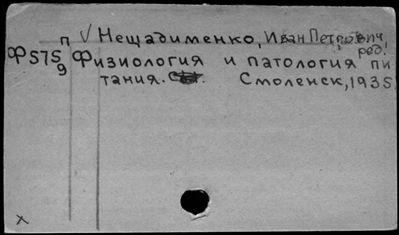 п √ Нещадименко, Иван Петрович,
ред.
Ф575 Физиология и патология пи
9 тания. Смоленск, 1935
x